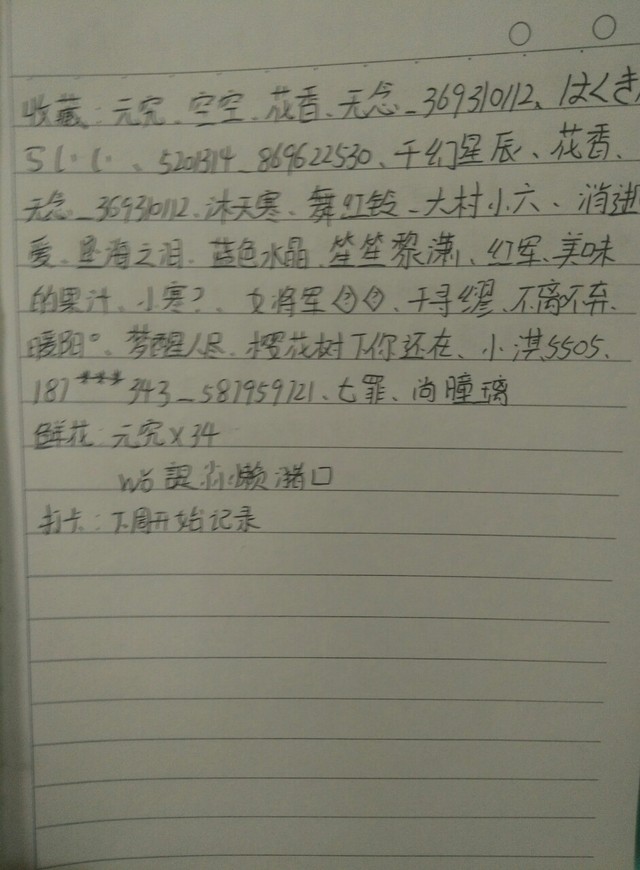 收藏：元宛、空空、花香、无念_369310112、はくき
51.1.、5201314_869622530、千幻星辰、花香、
无念_369310112、沐天寒、舞红铃、大村小六、消逝
爱、坠海之泪、蓝色水晶、笙笙黎潇、红军、美味
的果汁、小寒?、女将军、千寻缪、不离不弃、
暖阳°、梦醒人尽、樱花树下你还在、小淇5505、
187***343_587959721、七罪、尚瞳璃
鲜花：元宛×34
懒猪口
打卡：下周开始记录